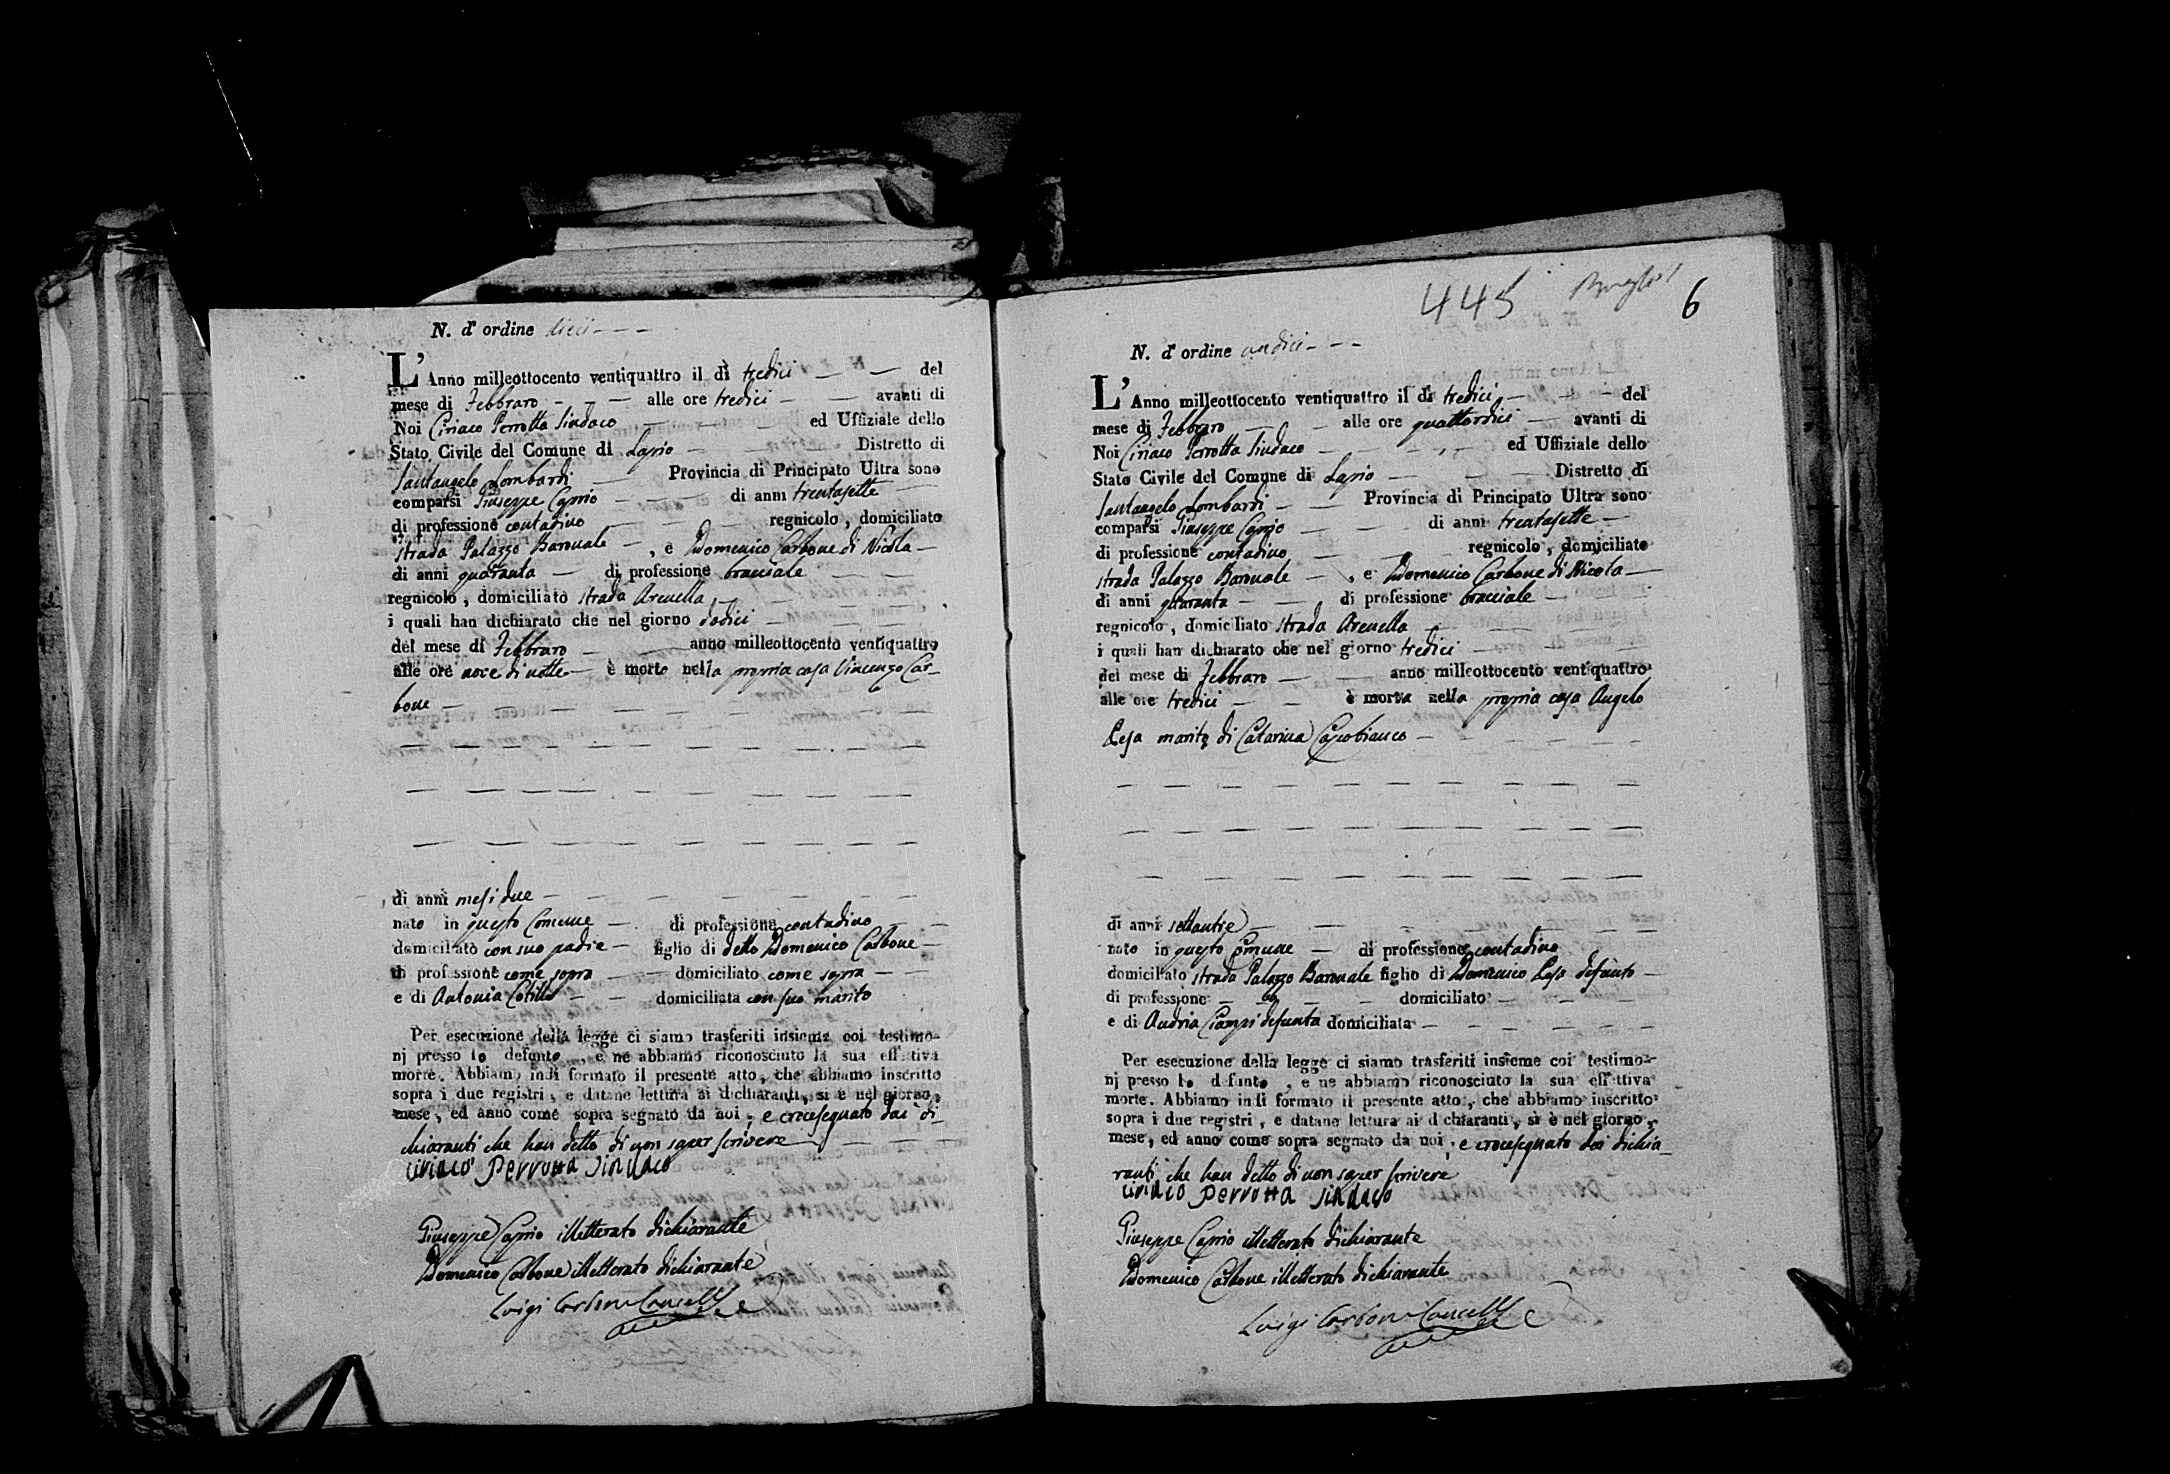 N. d' ordine dieci
L' Anno milleottocento ventiquattro il dì tredici del
mese di Febbraro alle ore tredici avanti di
Noi Ciriaco Perrotta Sindaco ed Uffiziale dello
Stato Civile del Comune di Lapio Distretto di
Santangelo Lombardi Provincia di Principato Ultra sono
comparsi Giuseppe Caprio di anni trentasette
di professione contadino regnicolo, domiciliato
strada Palazzo Baronale, e Domenico Carbone di Nicola
di anni quaranta di professione bracciale
regnicolo, domiciliato strada Arenella
i quali han dichiarato che nel giorno dodici
del mese di Febbraro anno milleottocento ventiquattro
alle ore nove di notte è morto nella propria casa Vincenzo Car-
bone
di anni mesi due
nato in questo Comune di professione contadino
domiciliato con suo padre figlio di detto Domenico Carbone
di professione come sopra domiciliato come sopra
e di Antonia domiciliata con suo marito
Per esecuzione della legge ci siamo trasferiti insieme coi testimo-
nj presso lo defunto, e ne abbiamo riconosciuto la sua effettiva
morte. Abbiamo indi formato il presente atto, che abbiamo inscritto
sopra i due registri, e datane lettura ai dichiaranti, si è nel giorno,
mese, ed anno come sopra segnato da noi, e crocesegnato dai di-
chiaranti che han detto di non saper scrivere
Ciriaco Perrotta Sindaco
Giuseppe Caprio illetterato dichiarante
Domenico Carbone illetterato dichiarante
Luigi Carbone Cancell.e
445
6
N. d' ordine undici
L' Anno milleottocento ventiquattro il dì tredici del
mese di Febbraro alle ore quattordici avanti di
Noi Ciriaco Perrotta Sindaco ed Uffiziale dello
Stato Civile del Comune di Lapio Distretto di
Santangelo Lombardi Provincia di Principato Ultra sono
comparsi Giuseppe Caprio di anni trentasette
di professione contadino regnicolo, domiciliato
strada Palazzo Baronale, e Domenico Carbone di Nicola
di anni quaranta di professione bracciale
regnicolo, domiciliato strada Arenella
i quali han dichiarato che nel giorno tredici
del mese di Febbraro anno milleottocento ventiquattro
alle ore tredici è morto nella propria casa Angelo
Lesa marito di Catarina Capobianco
di anni
nato in questo Comune di professione contadino
domiciliato strada Palazzo Baronale figlio di Domenico Lesa defunto
di professione domiciliato
e di Andria Ciampi defunta domiciliata
Per esecuzione della legge ci siamo trasferiti insieme coi testimo-
nj presso lo defunto, e ne abbiamo riconosciuto la sua effettiva
morte. Abbiamo indi formato il presente atto, che abbiamo inscritto
sopra i due registri, e datane lettura ai dichiaranti, si è nel giorno,
mese, ed anno come sopra segnato da noi, e crocesegnato dai dichia-
ranti che han detto di non saper scrivere
Ciriaco Perrotta Sindaco
Giuseppe Caprio illetterato dichiarante
Domenico Carbone illetterato dichiarante
Luigi Carbone Cancell.e